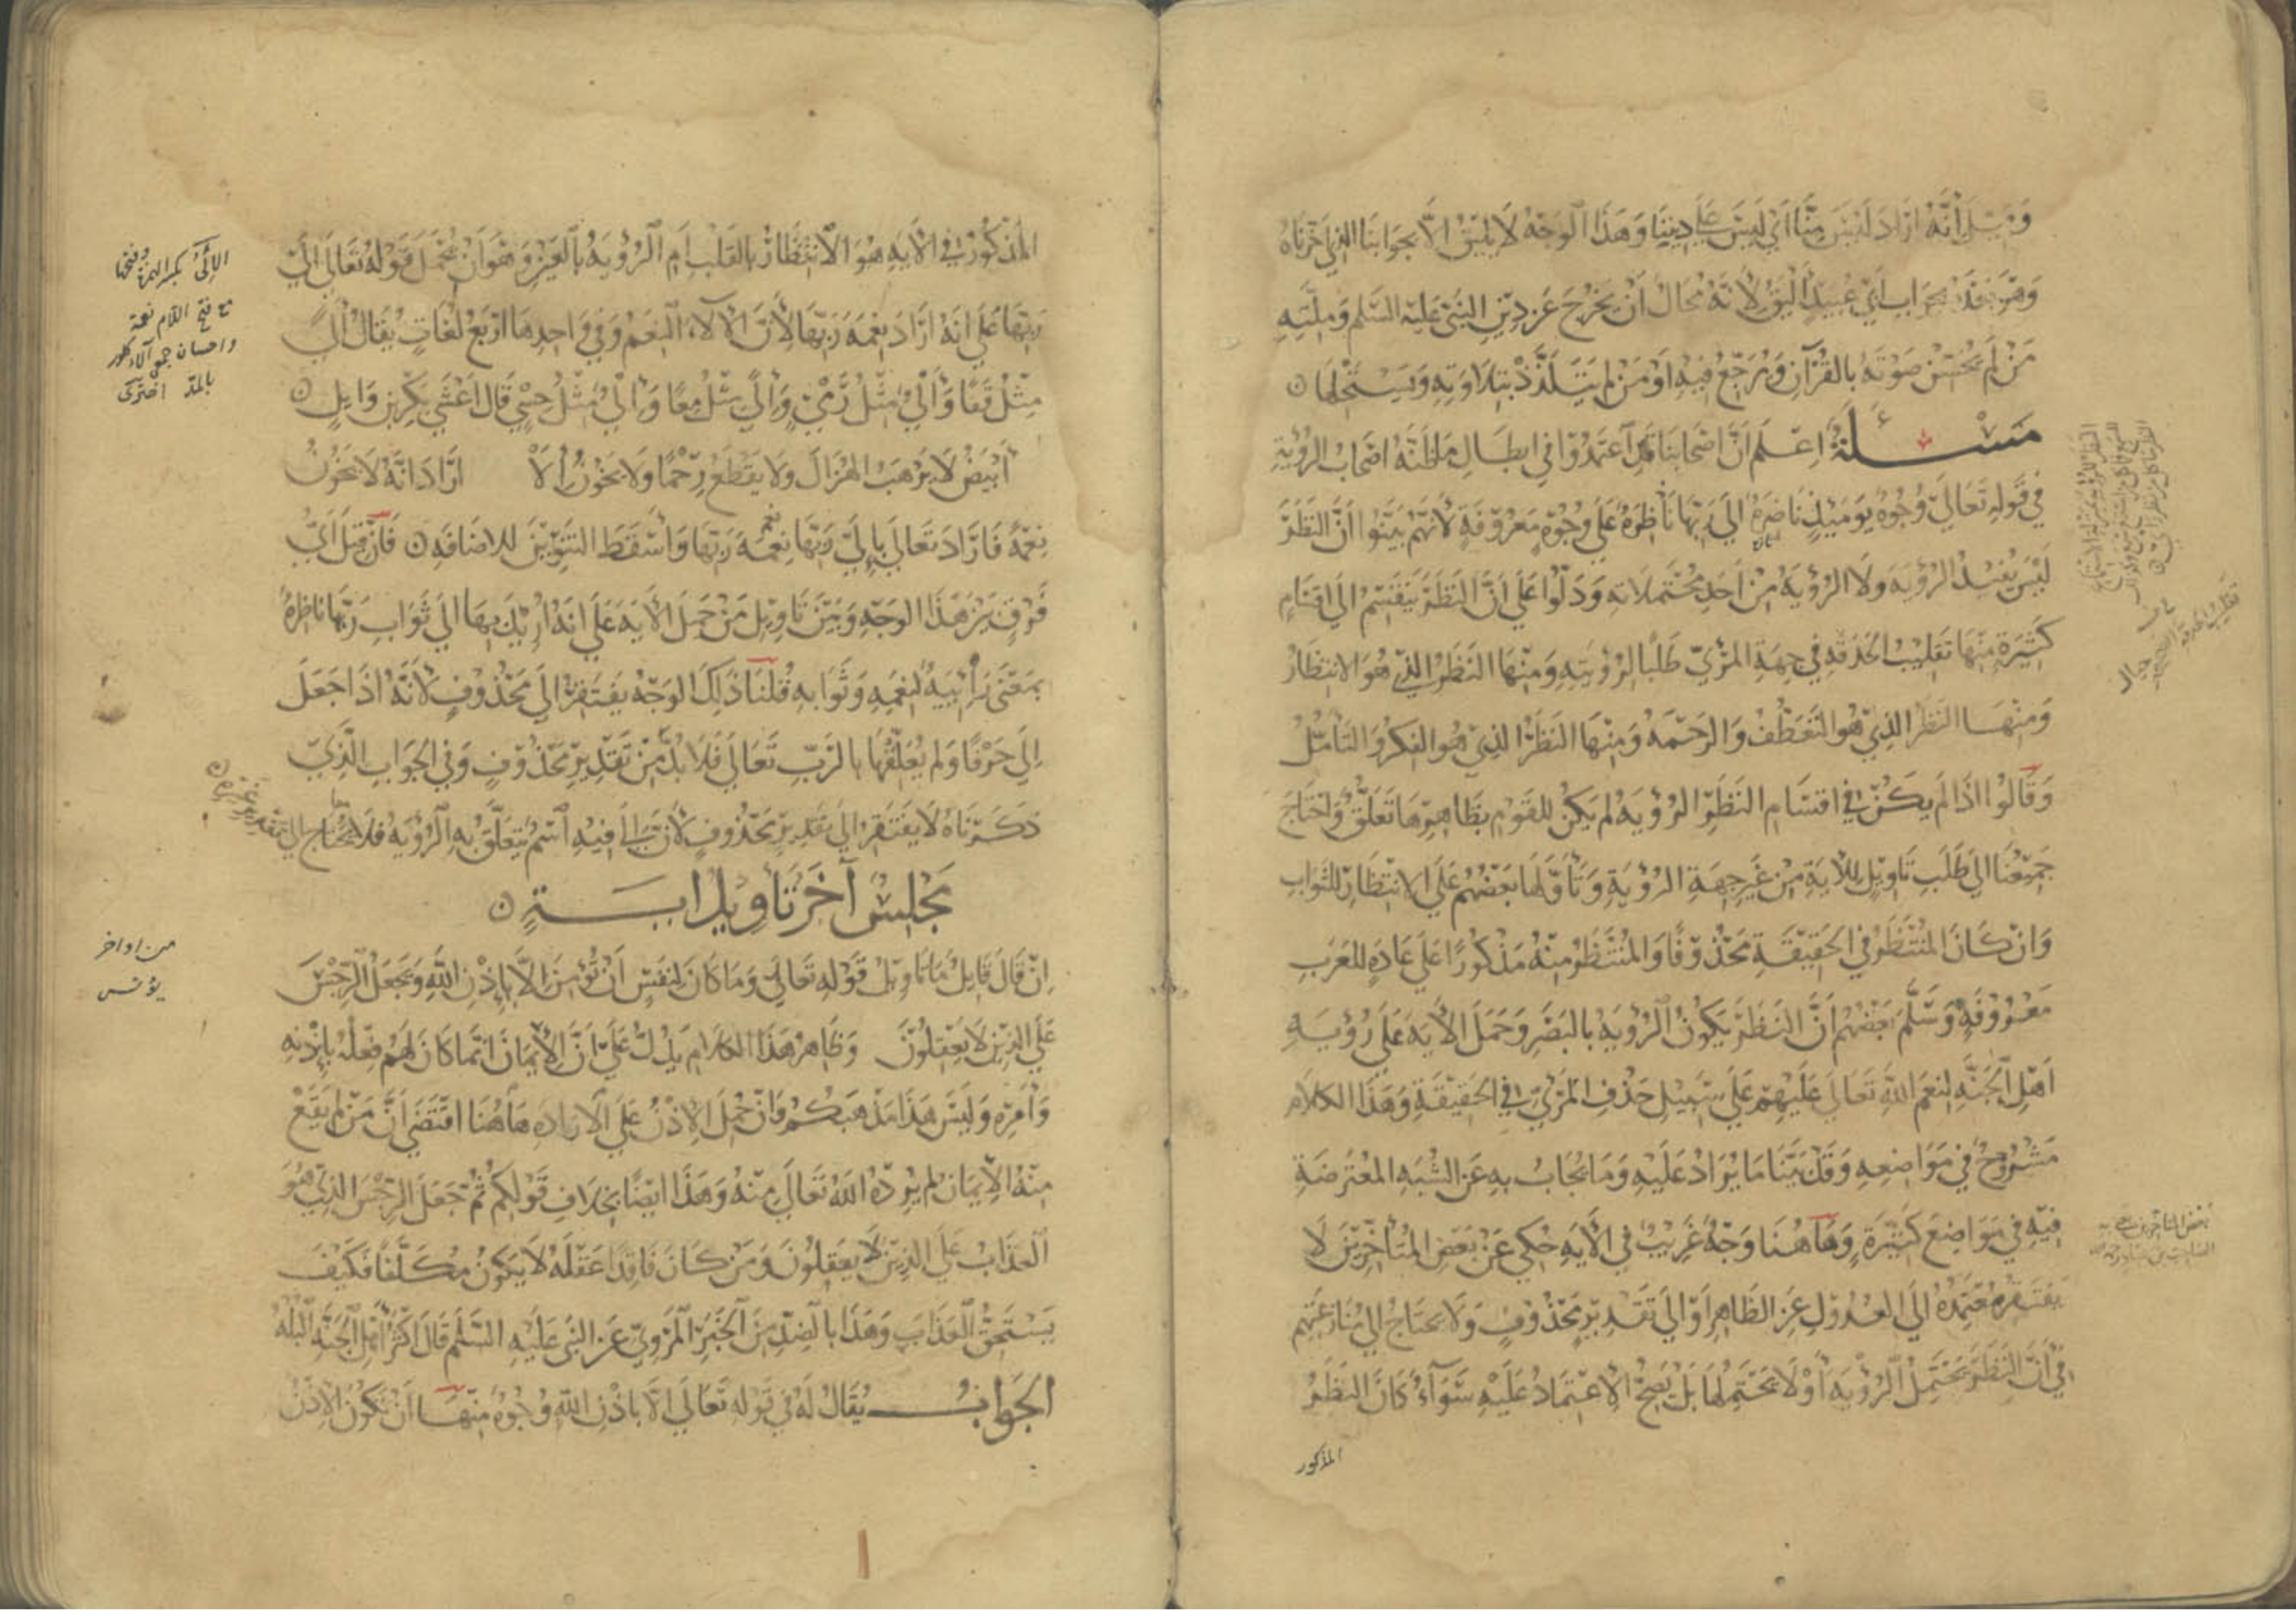 وقيل انه اراد ليس منا اي ليس على ديننا وهذا الوجه لا يليق الا بجوابنا الذي اخترناه
وهو بعد بجواب ابي عبيد أليق لأنه محال أن يخرج عن دين النبي عليه السلم وملته
من لم يحسن صوته بالقرآن ويرجع فيه او من لم يتلذذ بتلاوته ويستحلها
مسئلة اعلم أن اصحابنا قد اعتمدوا في ابطال ما ظنه اصحاب الرؤية
في قوله تعالى وجوه يومئذ ناضرة الى ربها ناظرة على وجوه معروفة لأنهم بينوا أن النظر
ليس يفيد الرؤية ولا الرؤية من أحد محتملاته ودلوا على أن النظر ينقسم الى اقسام
كثيرة منها تقليب الحدقة في جهة المرئي طلبا لرؤيته ومنها النظر الذي هو الانتظار
ومنها النظر الذي هو التعطف والرحمة ومنها النظر الذي هو الفكر والتأمل
وقالوا اذا لم يكن في اقسام النظر الرؤية لم يكن للقوم بظاهرها تعلق واحتاج
جميعنا الى طلب تأويل للآية من غير جهة الرؤية وتأولها بعضهم على الانتظار للثواب
وان كان المنتظر في الحقيقة محذوفا والمنتظر منه مذكورا على عادة للعرب
معروفة وسلم بعضهم أن النظر يكون الرؤية بالبصر وحمل الآية على رؤية
اهل الجنة لنعم الله تعالى عليهم على سبيل حذف المرئي في الحقيقة وهذا الكلام
مشروح في مواضعه وقد بينا ما يراد عليه وما يجاب به عن الشبه المعترضة
فيه في مواضع كثيرة وهاهنا وجه غريب في الآية حكي عن بعض المتأخرين لا
يفتقر معتمده الى العدول عن الظاهر أو الى تقدير محذوف ولا يحتاج الى منازعتهم
في أن النظر يحتمل الرؤية أو لا يحتملها بل يصح الاعتماد عليه سواء كان النظر
المذكور
المذكور في الآية هو الانتظار بالقلب أم الرؤية بالعين وهو ان يحمل قوله تعالى الى
ربها على انه اراد نعمة ربها لأن الآلاء النعم وفي واحدها اربع لغات يقال ألى
مثل قفا وألي مثل رمي وإلى مثل معا وإلي مثل حسي قال اعشى بكر بن وايل
أبيض لا يرهب الهزال ولا يقطع رحما ولا يخون إلا اراد انه لا يخون
نعمة فاراد تعالى بإلى ربها نعمة ربها وأسقط التنوين للاضافة فإن قيل أي
فرق بين هذا الوجه وبين تأويل من حمل الآية على انه أريد بها الى ثواب ربها ناظرة
بمعنى رائية لنعمه وثوابه قلنا ذلك الوجه يفتقر الى محذوف لأنه اذا جعل
الى حرفا ولم يعلقها بالرب تعالى فلا بد من تقدير محذوف وفي الجواب الذي
ذكرناه لا يفتقر الى تقدير محذوف لأن إلى فيه اسم يتعلق به الرؤية فلا يحتاج الى تقدير غيره
مجلس آخر تأويل آية
إن قال قايل ما تأويل قوله تعالى وما كان لنفس أن تؤمن الا بإذن الله ويجعل الرجس
على الذين لا يعقلون وظاهر هذا الكلام يدل على ان الايمان انما كان لهم فعله بإذنه
وأمره وليس هذا مذهبكم وان حمل الاذن على الارادة هاهنا اقتضى أن من لم يقع
منه الايمان لم يرده الله تعالى منه وهذا ايضا بخلاف قولكم ثم جعل الرجس الذي هو
العذاب على الذين لا يعقلون ومن كان فاقدا عقله لا يكون مكلفا فكيف
يستحق العذاب وهذا بالضد من الخبر المروي عن النبي عليه السلم قال اكثر أهل الجنة البله
الجواب يقال له في قوله تعالى الا باذن الله وجوه منها أن يكون الاذن
الإلى بكسر الهمزة وفتحها
مع فتح اللام نعمة
واحسان جمع آلاء كلور
بالمد اخترى
من اواخر
يونس